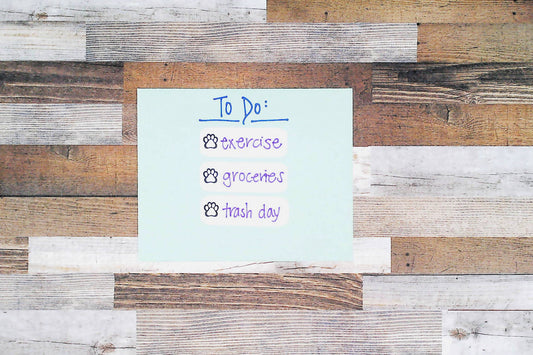 To Do:
exercise
groceries
trash day